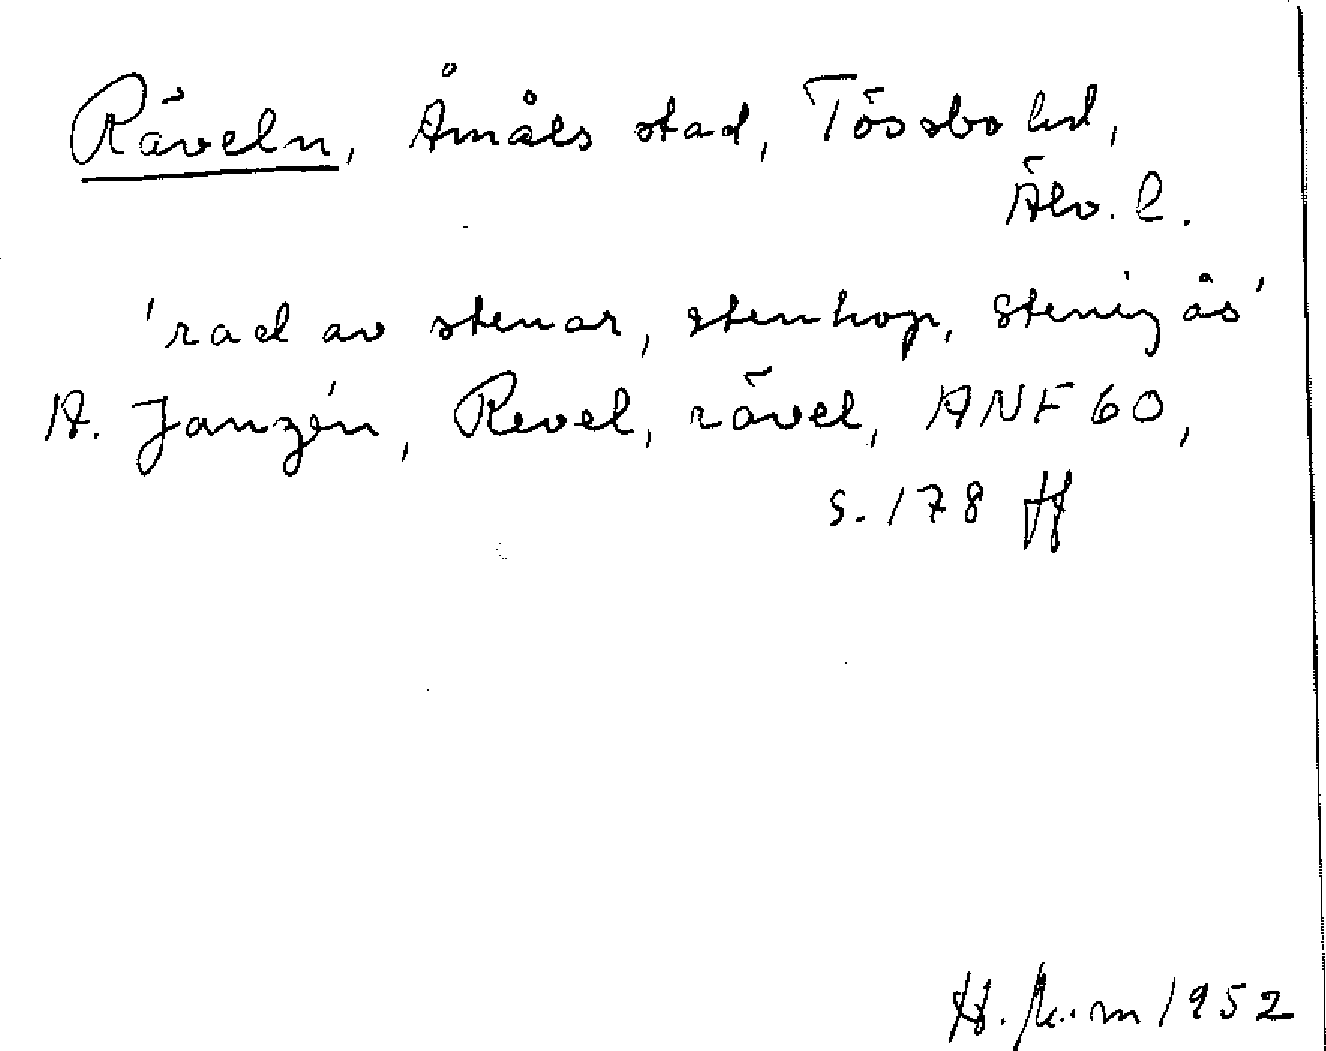 Räveln, Åmåls stad, Tössbo hd,
Älv. l.
'rad av stenar, stenhop, stenig ås'
A. Janzén, Revel, rävel, ANF 60,
s. 178 ff
H. 1952